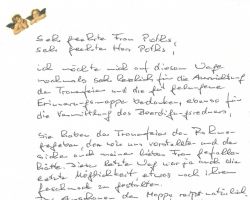 Sehr geehrte Frau Poths,
sehr geehrter Herr Poths,
ich möchte mich auf diesem Wege
nochmals sehr herzlich für die Ausrichtung
der Trauerfeier und die gut gelungene
Erinnerungsmappe bedanken, ebenso für
die Vermittlung des Beerdigungsredners.
Sie haben der Trauerfeier den Rahmen
gegeben, den wir uns vorstellten und der
sicher auch meiner lieben Frau gefallen
hätte. Diese letzte war ja auch die
letzte Möglichkeit, etwas nach ihrem
Geschmack zu gestalten.
Anschauen der Mappe natürlich